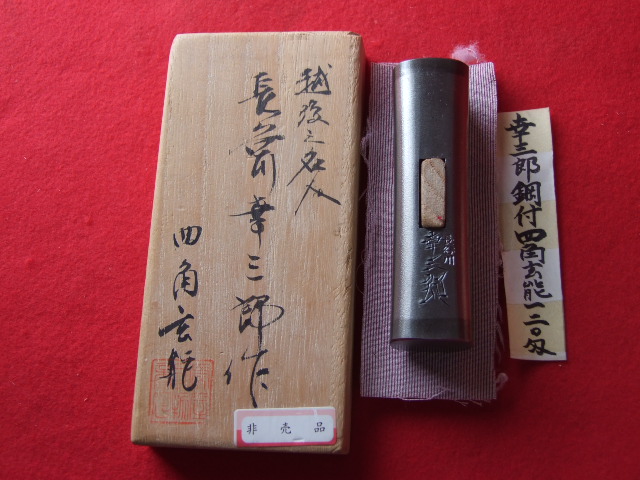 越後之名人
長谷川幸三郎作
四角玄能
非売品
長谷川
幸三郎
幸三郎鋼付四角玄能一二〇匁